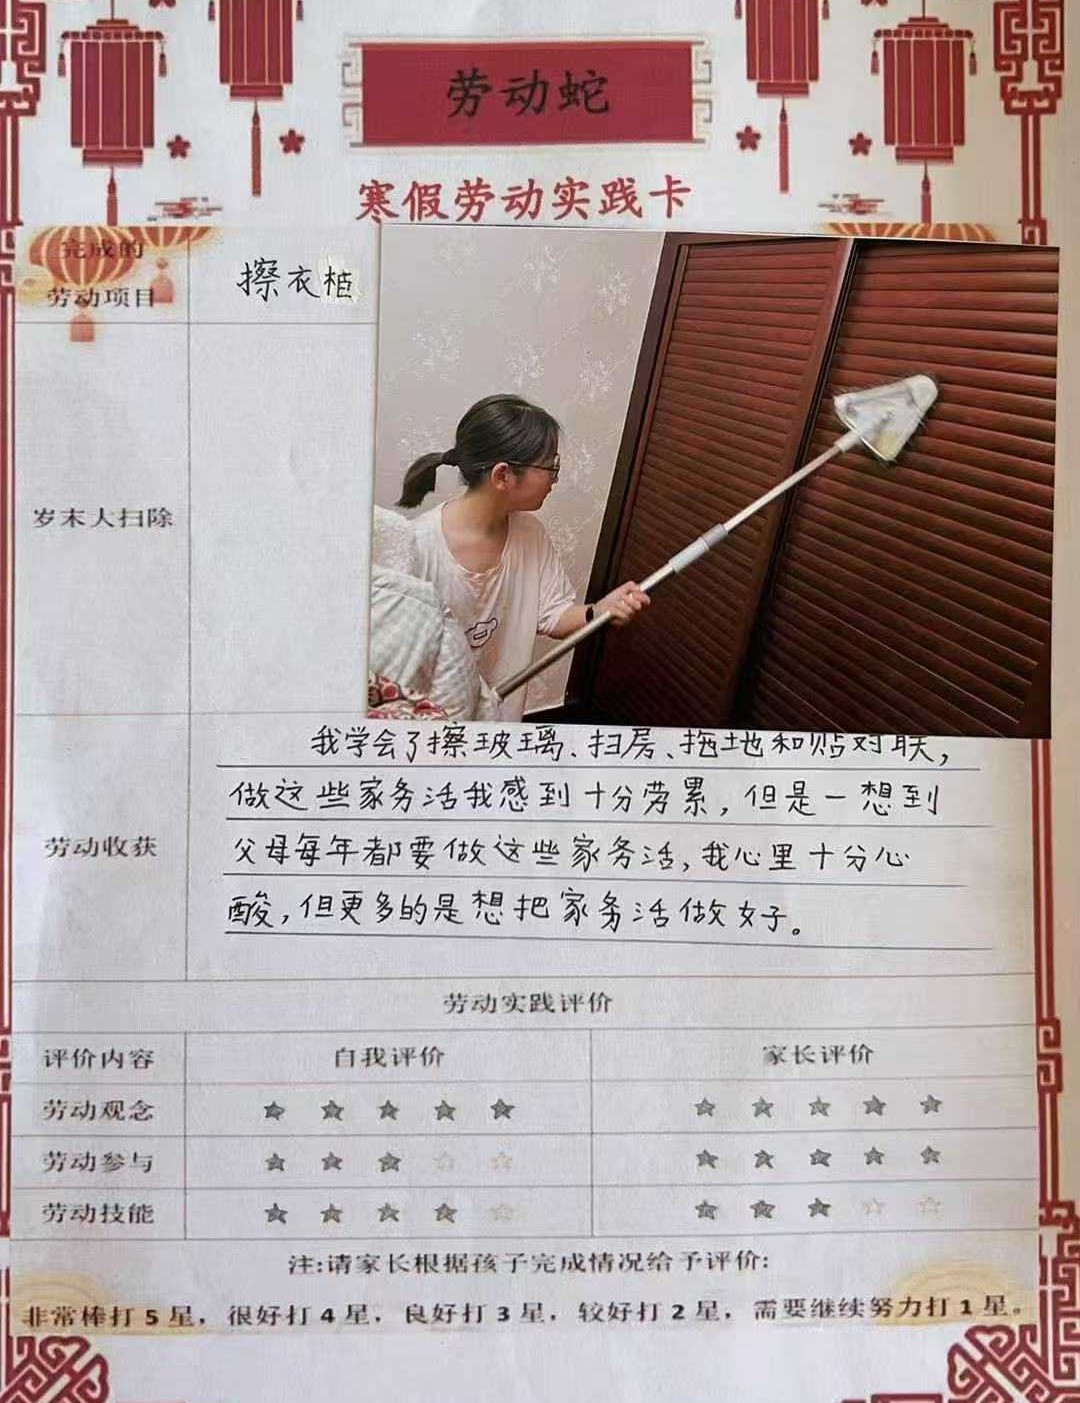 劳动蛇
寒假劳动实践卡
完成的
劳动项目
擦衣柜
岁末大扫除
劳动收获
我学会了擦玻璃、扫房、拖地和贴对联,
做这些家务活我感到十分劳累,但是一想到
父母每年都要做这些家务活,我心里十分心
酸,但更多的是想把家务活做好。
劳动实践评价
评价内容 自我评价 家长评价
劳动观念 ★ ★ ★ ★ ★ ★ ★ ★ ★ ★
劳动参与 ★ ★ ★ ☆ ☆ ★ ★ ★ ★ ★
劳动技能 ★ ★ ★ ★ ☆ ★ ★ ★ ☆ ☆
注:请家长根据孩子完成情况给予评价:
非常棒打 5 星，很好打 4 星，良好打 3 星，较好打 2 星，需要继续努力打 1 星。